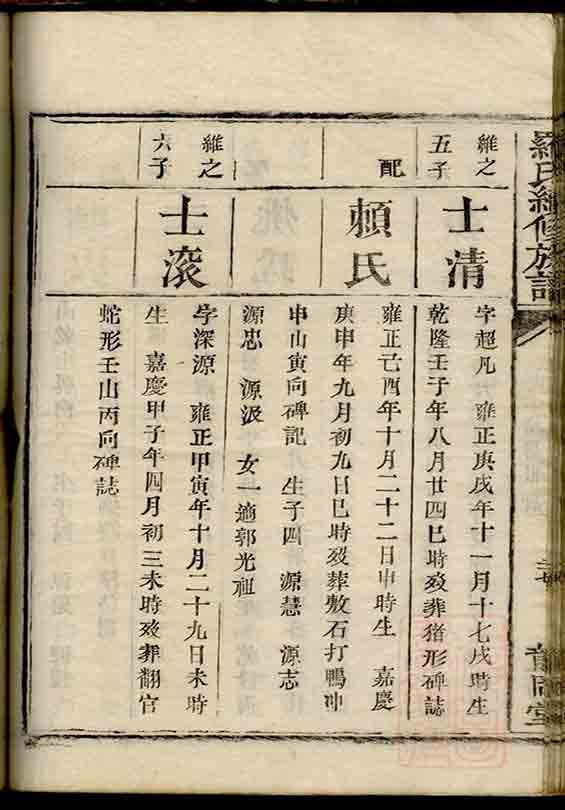 羅氏續修族譜
維之
五子
士清
字超凡 雍正庚戌年十一月十七戌時生
乾隆壬子年八月廿四巳時歿葬猪形碑誌
配
賴氏
雍正己酉年十月二十二日申時生 嘉慶
庚申年九月初九日巳時歿葬敷石打鴨冲
申山寅向碑記 生子四 源慧 源志
源忠 源汲 女一適郭光祖
維之
六子
士滚
字深源 雍正甲寅年十月二十九日未時
生 嘉慶甲子年四月初三未時歿葬翻官
蛇形壬山丙向碑誌